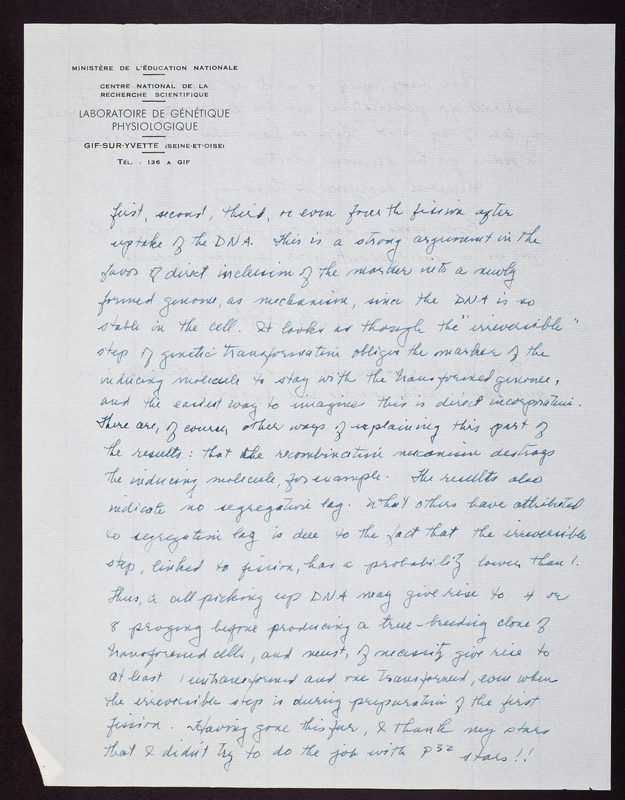 MINISTÈRE DE L'ÉDUCATION NATIONALE
CENTRE NATIONAL DE LA
RECHERCHE SCIENTIFIQUE
LABORATOIRE DE GÉNÉTIQUE
PHYSIOLOGIQUE
GIF-SUR-YVETTE (SEINE-ET-OISE)
TÉL. : 136 A GIF
first, second, third, or even fourth fission after
uptake of the DNA. This is a strong argument in the
favor of direct inclusion of the marker into a newly
formed genome, as mechanism, since the DNA is so
stable in the cell. It looks as though the "irreversible"
step of genetic transformation obliges the marker of the
inducing molecule to stay with the transformed genome,
and the easiest way to imagine this is direct incorporation.
There are, of course, other ways of explaining this part of
the results: that the recombination mechanism destroys
the inducing molecule, for example. The results also
indicate no segregation lag. What others have attributed
to segregation lag is due to the fact that the irreversible
step, linked to fission, has a probability lower than 1.
Thus, a cell picking up DNA may give rise to 4 or
8 progeny before producing a true-breeding clone of
transformed cells, and must, of necessity give rise to
at least 1 untransformed and one transformed, even when
the irreversible step is during preparation of the first
fission. Having gone this far, I thank my stars
that I didn't try to do the job with P32 stars!!